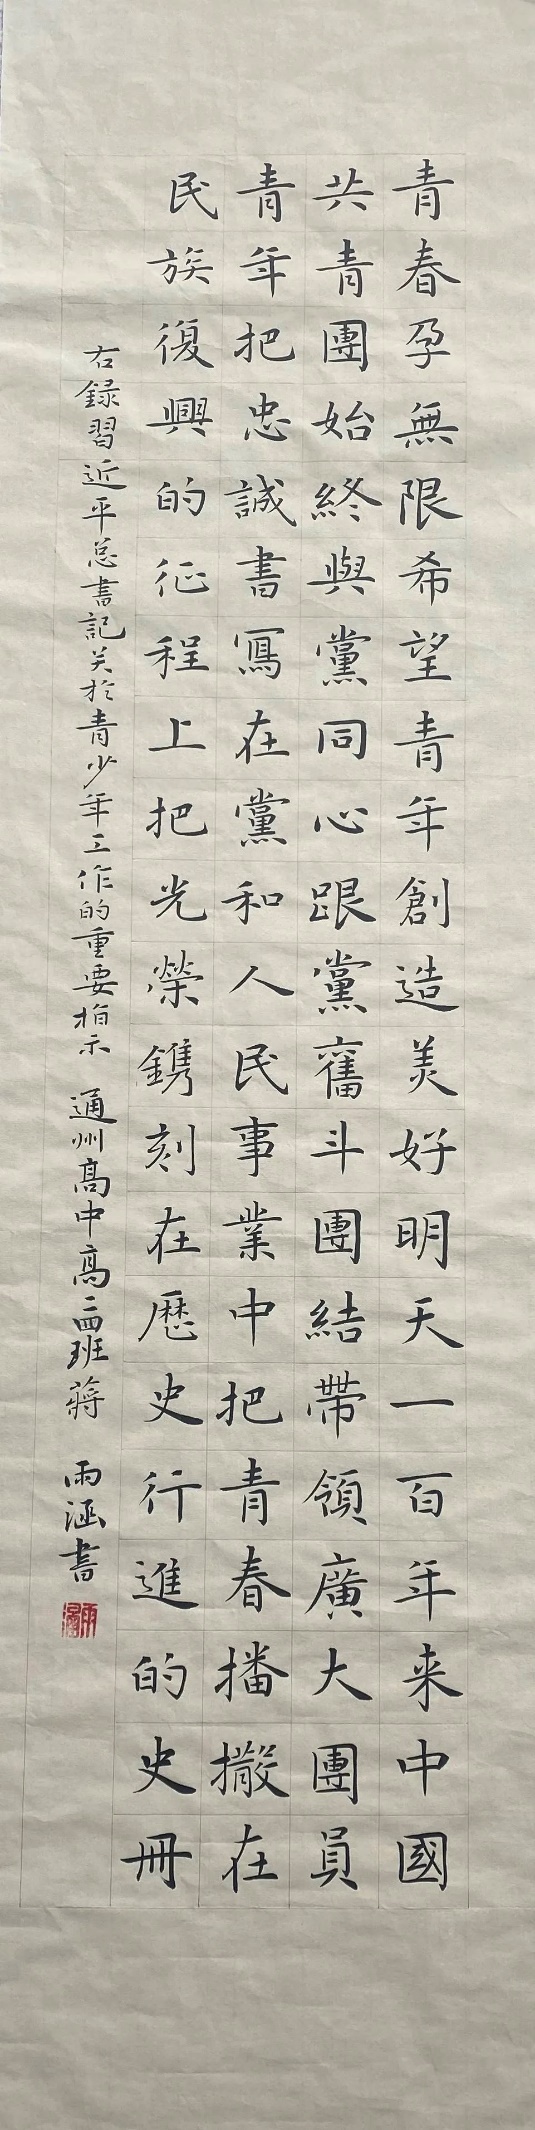 青春孕無限希望青年創造美好明天一百年来中國
共青團始終與黨同心跟黨奮斗團結帶領廣大團員
青年把忠誠書寫在黨和人民事業中把青春播撒在
民族復興的征程上把光榮鐫刻在歷史行進的史冊
右録習近平总書記关於青少年工作的重要指示 通州高中高二四班蔣雨涵書
雨涵